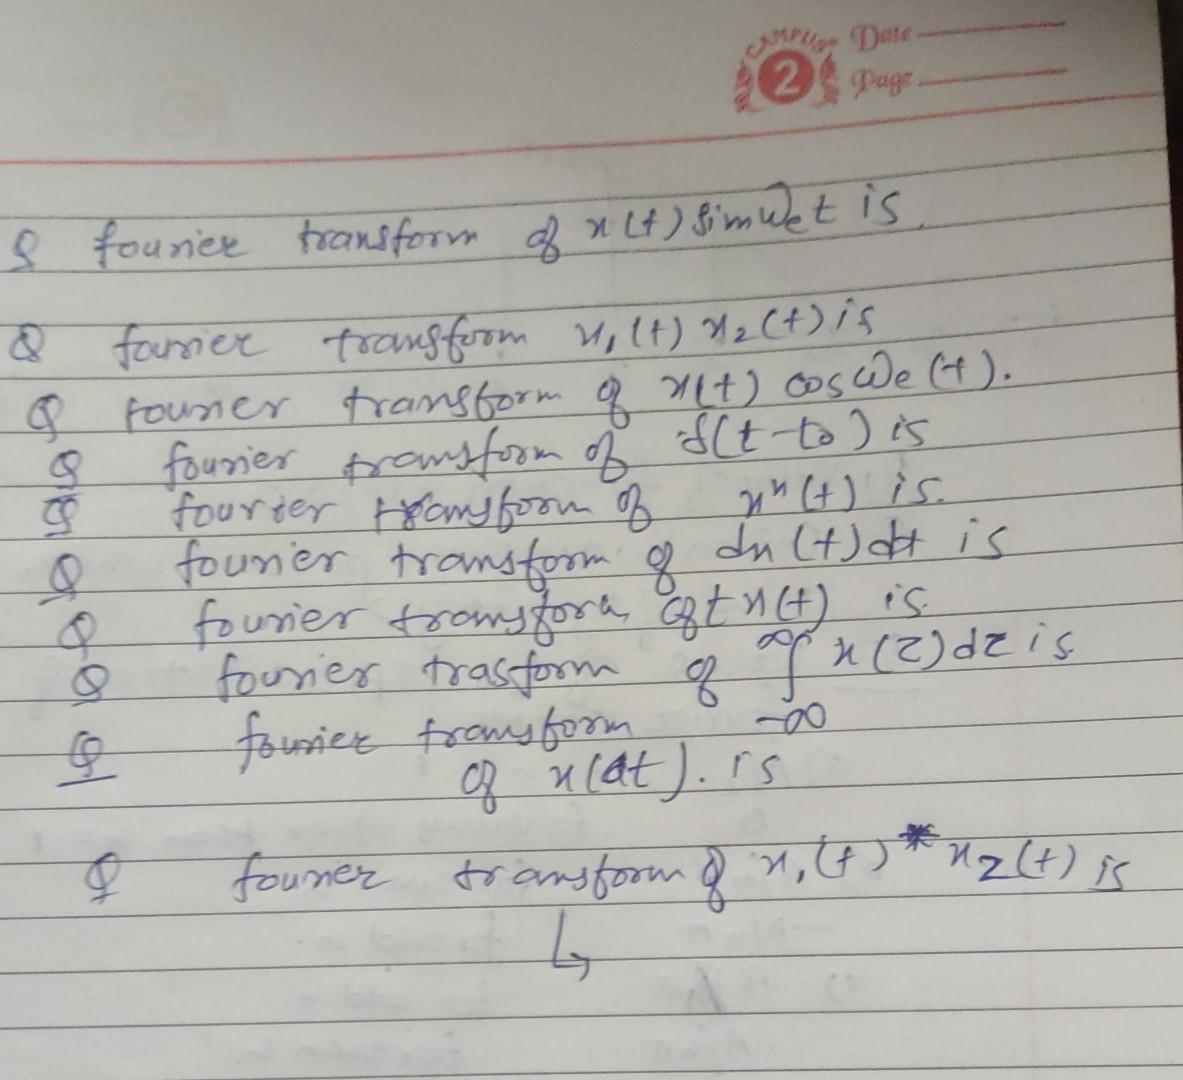 CAMPUS Date
2 Page
Q fourier transform of x(t) sinWct is
Q fourier transform x₁(t) x₂(t) is
Q fourier transform of x(t) cosωc(t).
Q fourier transform of δ(t-to) is
Q fourier transform of xⁿ(t) is.
Q fourier transform of dx(t)dt is
Q fourier transform of t x(t) is
Q fourier trasform of ∞∫ x(τ)dτ is
Q fourier transform -∞
of x(at). is
Q fourier transform of x₁(t) * x₂(t) is
↳